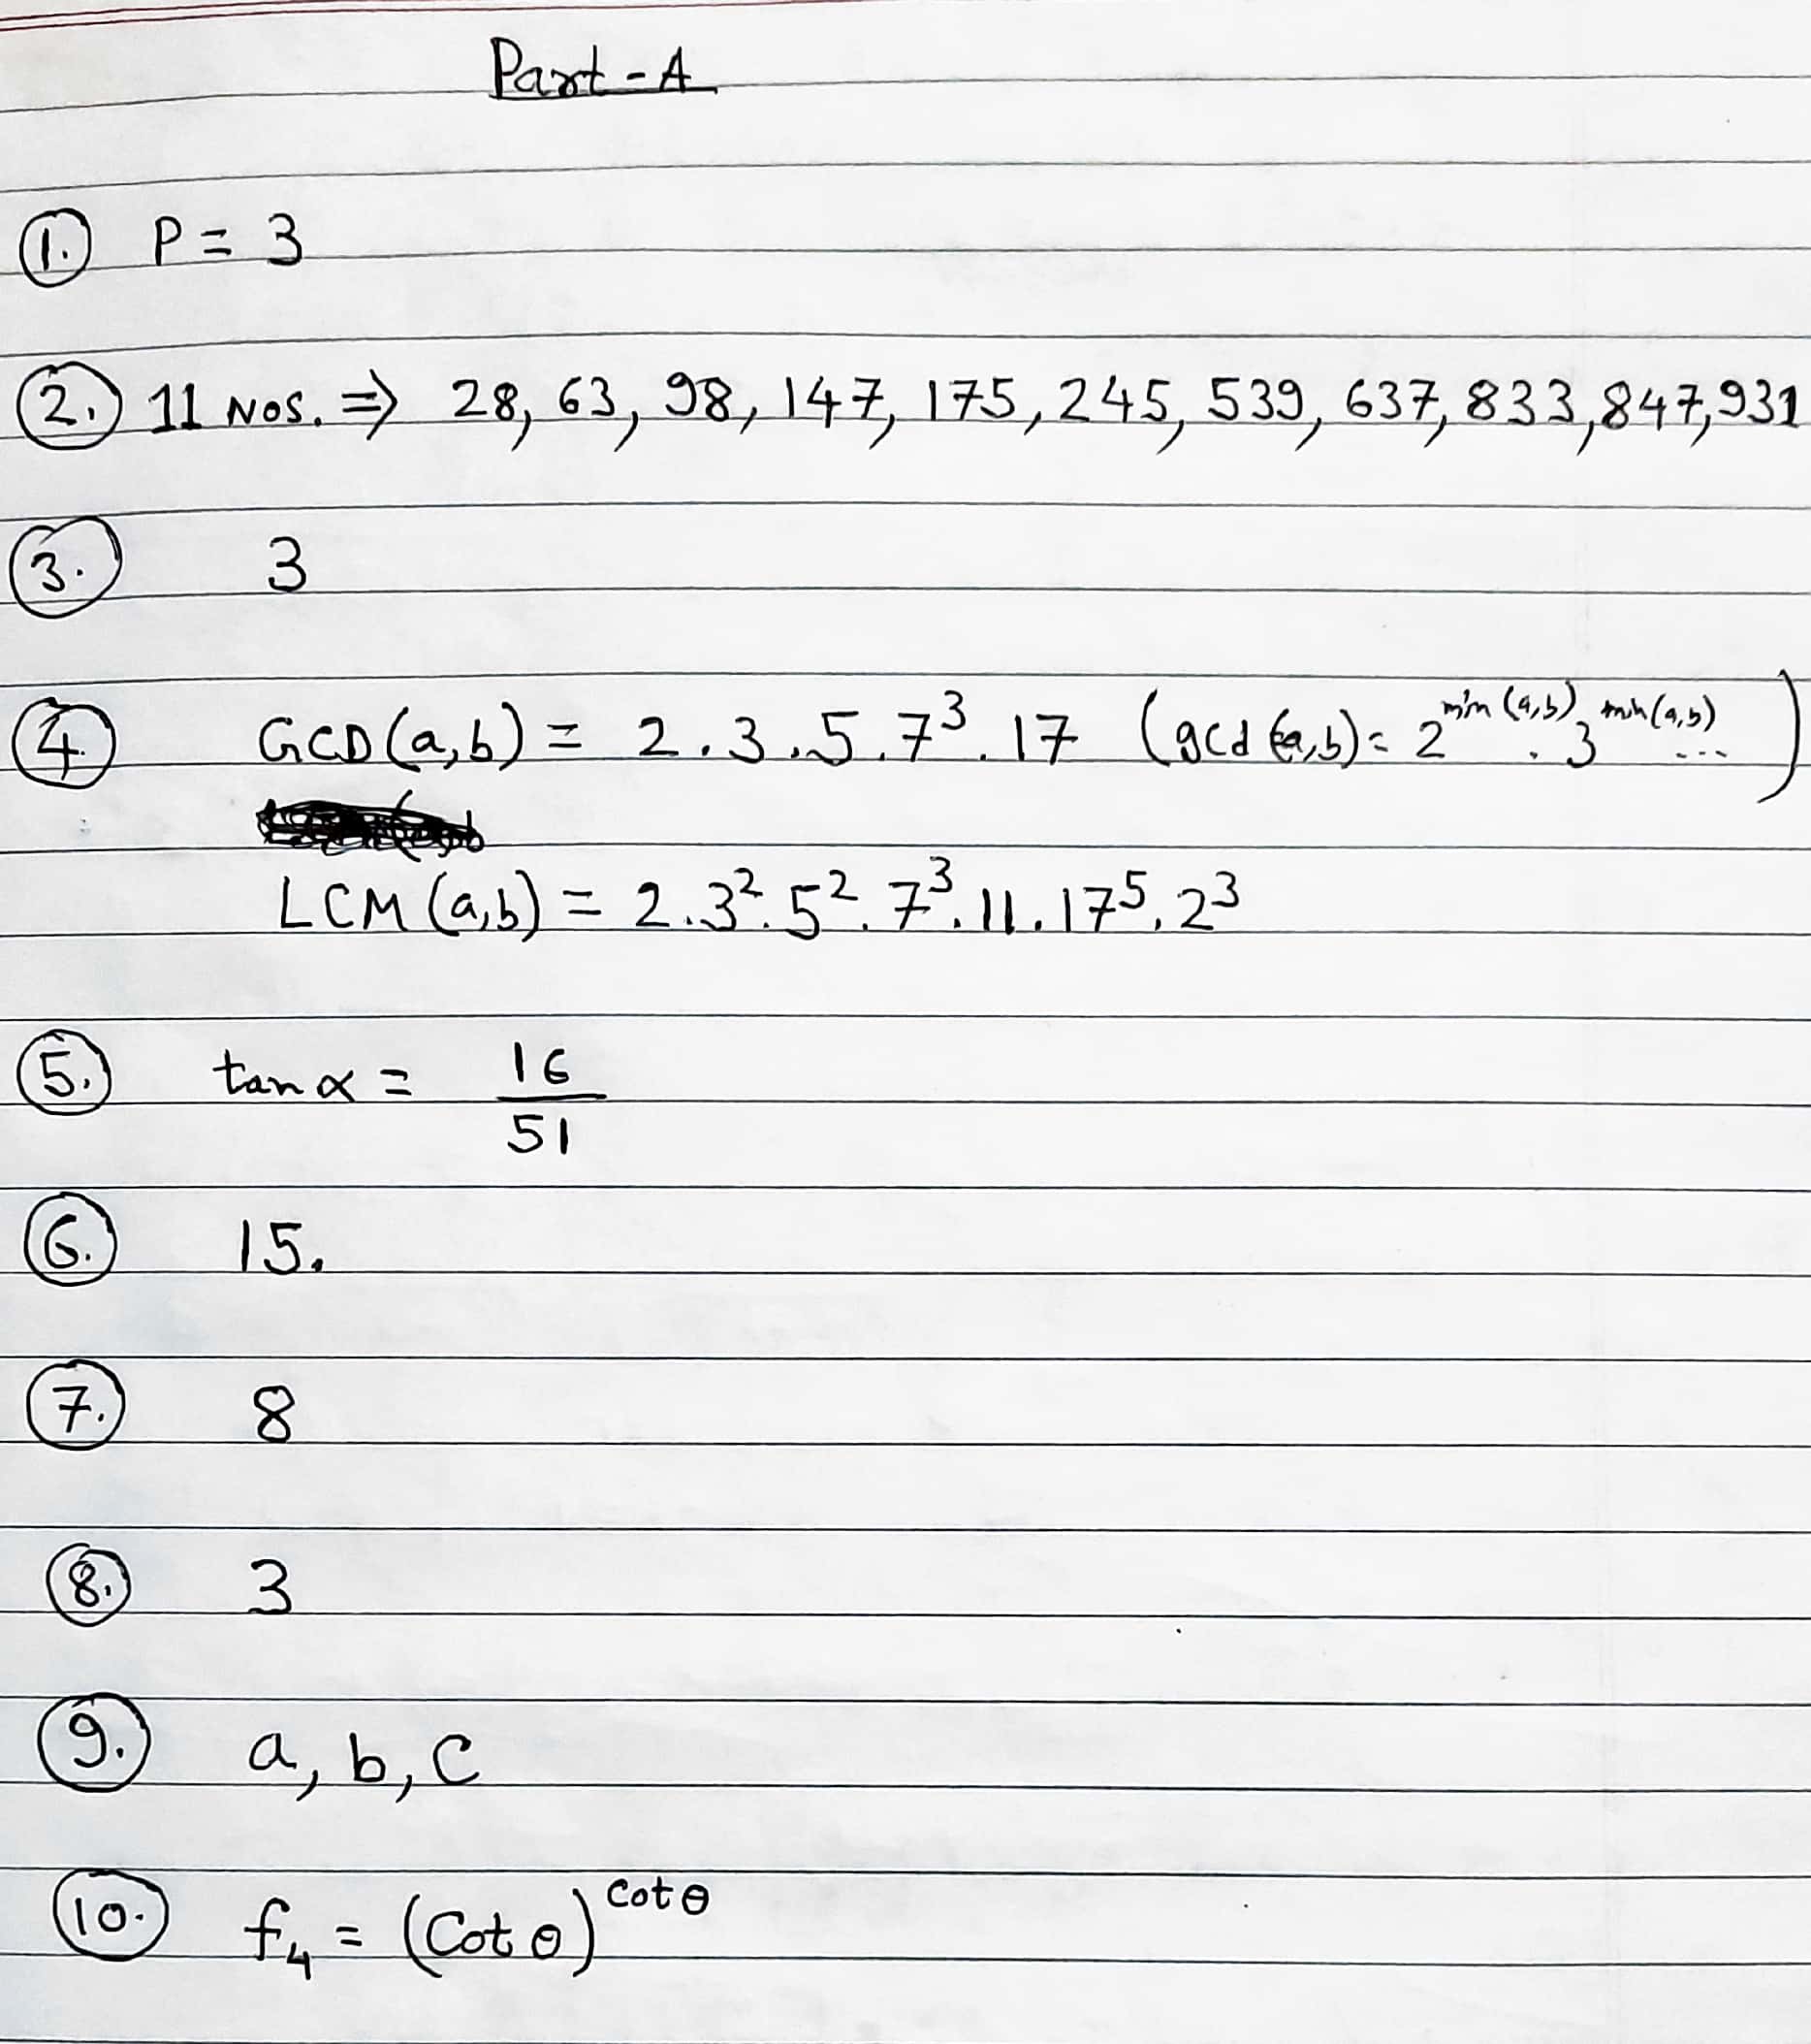 Part-A
1. P = 3
2. 11 NOS. ⇒ 28, 63, 98, 147, 175, 245, 539, 637, 833, 847, 931
3. 3
4. GCD(a,b) = 2.3.5.7³.17 (gcd(a,b) = 2^min(a,b) . 3^min(a,b) ...)
LCM(a,b) = 2.3².5².7³.11.17⁵.2³
5. tan α = 16/51
6. 15.
7. 8
8. 3
9. a, b, c
10. f₄ = (Cot θ)^Cot θ